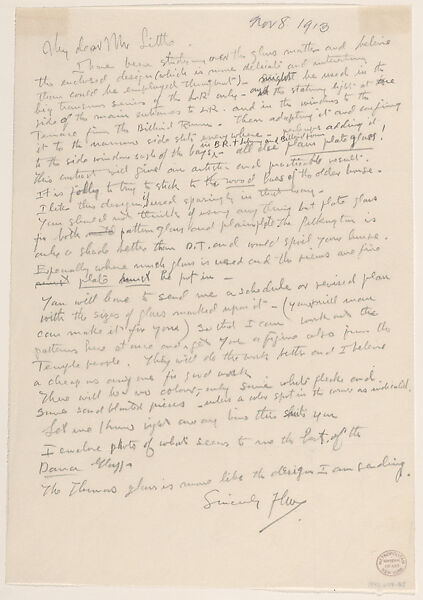 Nov 8 1913
My dear Mr Little
I have been studying over the glass matter and believe
the enclosed design (which is more delicate and interesting
than could be employed throughout) might be used in the
big transom series of the L.R. only - and the skating lights at the
side of the main entrance to L.R. and in the windows to the
Terrace from the Billiard Room. Then adapting it and confining
it to the narrow side slats everywhere - perhaps adding it
to the side windows sash of the bays, in B.R. + Library and Billiard Room - all else plain plate glass!
This contrast will give an artistic and practicable result.
It is folly to try to stick to the wood bars of the older house.
I like this design, used sparingly in that way.
You should not think of using any thing but plate glass
for both pattern glass and plain plate. The Pilkington is
only a shade better than D.T. and would spoil your house.
Especially where much glass is used and the views are fine
plate must be put in -
You will have to send me a schedule or revised plan
with the sizes of glass marked upon it - (your mill man
can make it for you) so that I can work out the
patterns here at once and get you a figure also from the
Temple people. They will do the work better and I believe
as cheap as any one for good work
There will be no colour, only some white flecks and
some sand blasted pieces - unless a color spot in the corner as indicated.
Let me know right away how this suits you
I enclose photo of what seems to me the best of the
Dana Glass
The Thomas glass is more like the design I am sending.
Sincerely FLLW
METROPOLITAN
MUSEUM
OF ART
NEW YORK